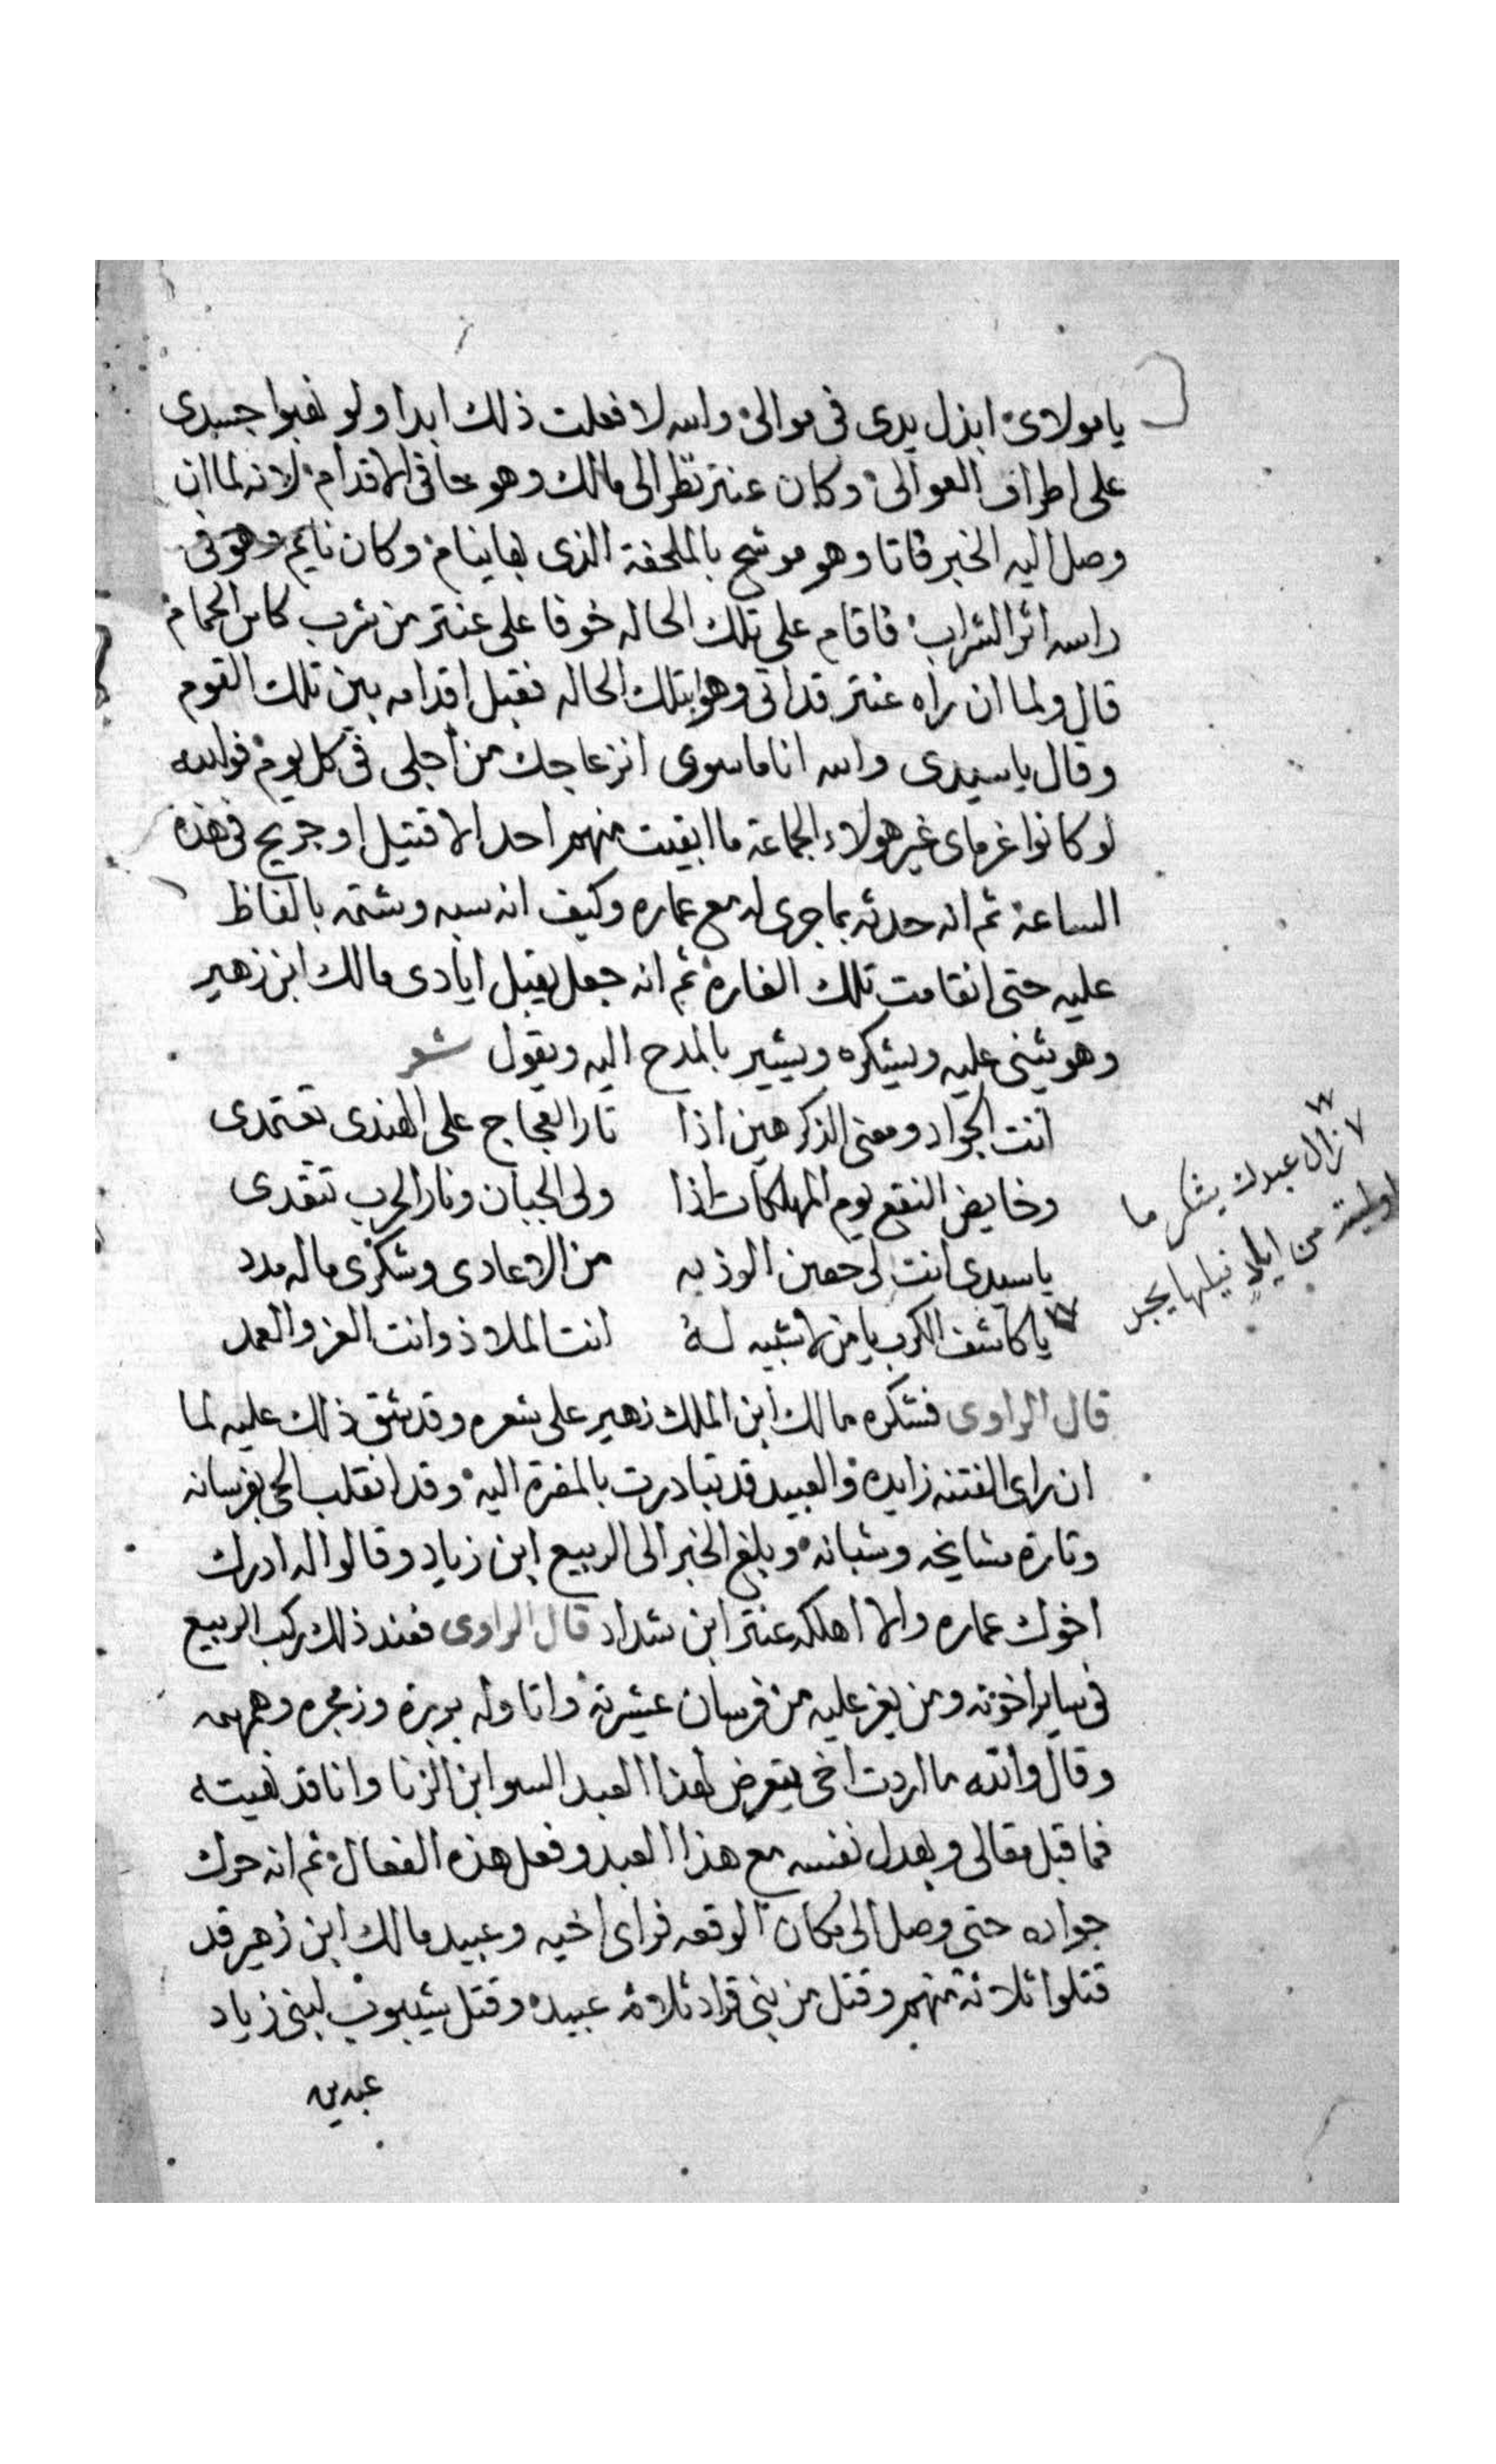 يا مولاى ابذل يدى فى موالى والله لا فعلت ذلك ابدا ولو نهبوا جسدى
على اطراف العوالى وكان عنتر نظر الى مالك وهو حافى الاقدام لانه لما ان
وصل اليه الخبر فاتا وهو موشح بالملحفة الذى بها ينام وكان نايم وهو فى
راسه اثر الشراب فاقام على تلك الحاله خوفا على عنتر من شرب كاس الحمام
قال ولما ان راه عنتر قد اتى وهو بتلك الحاله فقبل اقدامه بين تلك القوم
وقال يا سيدى والله انا ما سوى انزعاجك من اجلى فى كل يوم فوالله
لو كانوا غرماى غير هولاء الجماعة ما ابقيت منهم احد الا قتيل او جريح فى هذه
الساعة ثم انه حدثه بما جرى له مع عماره وكيف انه سبه وشتمه بالفاظ
عليه حتى انقامت تلك الغارة ثم انه جعل يقبل ايادى مالك ابن زهير
وهو يثنى عليه ويشكره ويشير بالمدح اليه ويقول شعر
انت الجواد ومعنى الذكر حين اذا ثار العجاج على الهندى تعتمدى
وخايض النقع يوم المهلكات اذا ولى الجبان ونار الحرب تتقدى
يا سيدى انت لى حصن الوذ به من الاعادى وشكرى ماله مدد
يا كاشف الكرب يا من لا شبيه له انت الملاذ وانت العز والعمد
لا زال عبدك يشكر ما
اوليته من ايادٍ نيلها يجر
قال الراوى فشكره مالك ابن الملك زهير على شعره وقد شق ذلك عليه لما
ان راى الفتنه زايده والعبيد قد تبادرت بالمضرة اليه وقد انقلب الحى بفرسانه
وثارة مشايخه وشبانه وبلغ الخبر الى الربيع ابن زياد وقالوا له ادرك
اخوك عماره والا اهلكه عنتر ابن شداد قال الراوى فعند ذلك ركب الربيع
فى ساير اخوته ومن يعز عليه من فرسان عشيرته واتا وله بربرة وزمجره وهمهمه
وقال والله ما اردت اخى يتعرض لهذا العبد السو ابن الزنا وانا قد نهيته
فما قبل مقالى وبهدل نفسه مع هذا العبد وفعل هذه الفعال ثم انه حرك
جواده حتى وصل الى مكان الوقعه فراى اخيه وعبيد مالك ابن زهير قد
قتلوا ثلاثة منهم وقتل من بنى قراد ثلاثه عبيده وقتل شيبوب لبنى زياد
عبدين